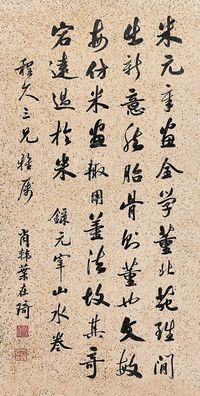 米元章畫全學董北苑雖間
出新意然胎骨則董也文敏
每仿米畫輒用董法故其奇
宕遠過於米 錄元宰山水卷
久三兄雅屬
肖韓葉在琦